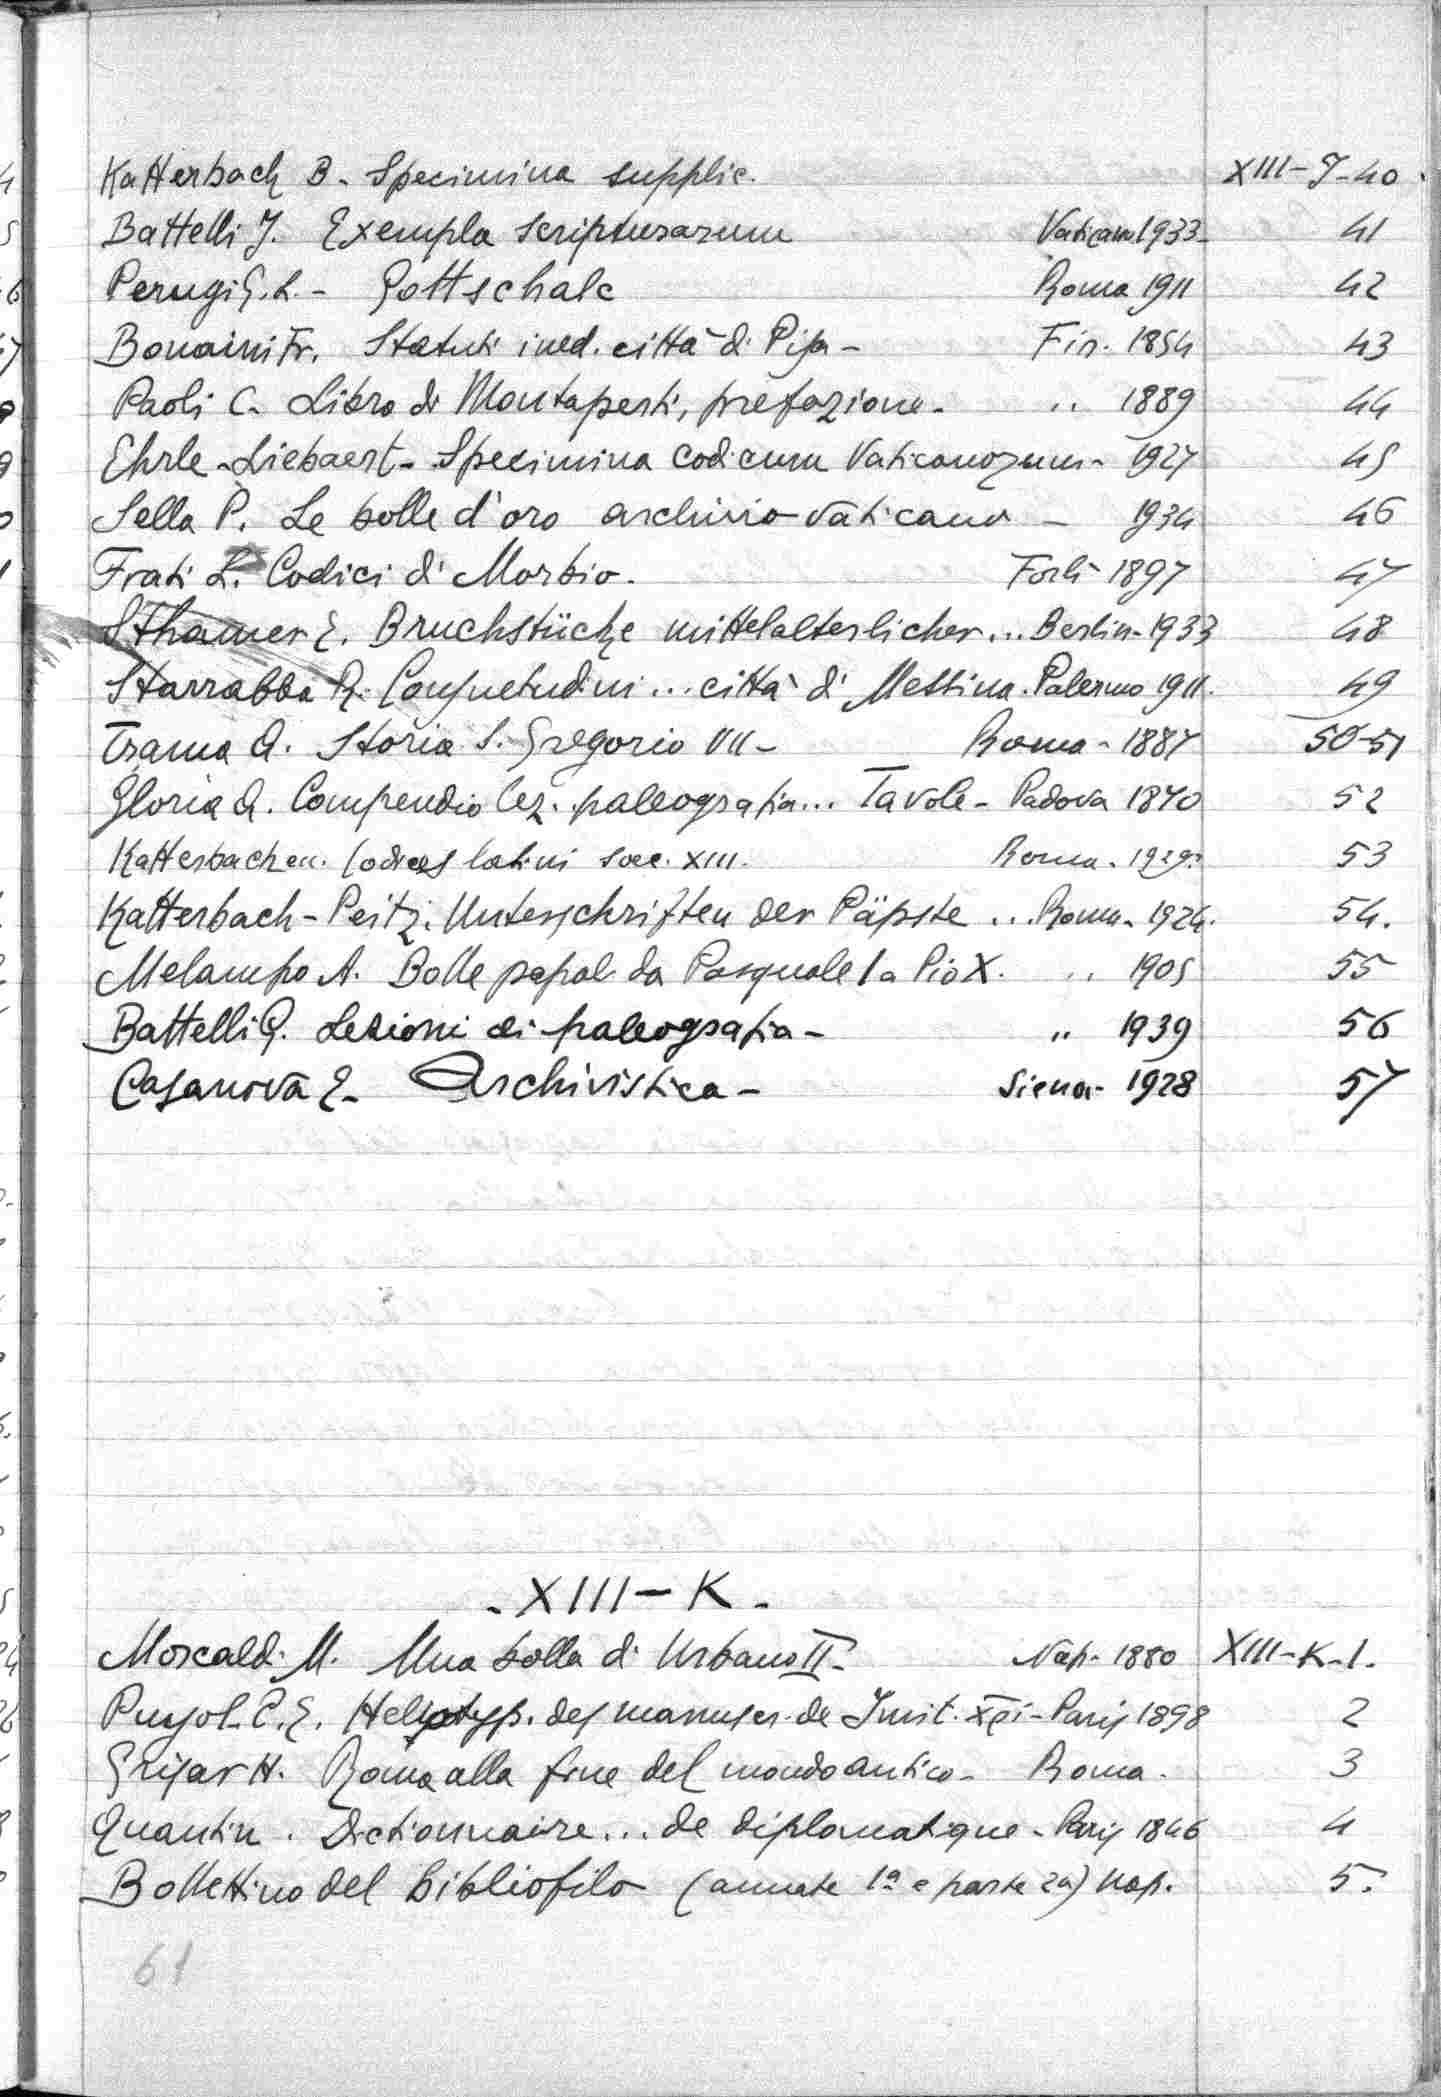 Katterbach B. - Specimina supplic. XIII-J-40.
Battelli J. Exempla scripturarum Vaticano 1933- 41
Perugi G. L. - Gottschalc Roma 1911 42
Bonaini Fr. Statuti ined. città di Pisa - Fir. 1854 43
Paoli C. Libro di Montaperti, prefazione - " 1889 44
Ehrle - Liebaert - Specimina codicum Vaticanorum - 1927 45
Sella P. Le bolle d'oro archivio vaticano - 1934 46
Frati L. Codici di Morbio. Forlì 1897 47
Sthamer E. Bruchstücke mittelalterlicher... Berlin-1933 48
Starrabba R. Consuetudini... città di Messina. Palermo 1911. 49
Trama A. Storia S. Gregorio VII - Roma - 1887 50-51
Gloria A. Compendio lez. paleografia... Tavole - Padova 1870 52
Katterbach en. Codices latini saec. XIII. Roma. 1929. 53
Katterbach - Peitz. Unterschriften der Päpste ... Roma - 1924. 54.
Melampo A. Bolle papal. da Pasquale I a Pio X. " 1905 55
Battelli G. Lezioni di paleografia - " 1939 56
Casanova E - Archivistica - Siena - 1928 57
- XIII - K -
Morcaldi M. Una bolla di Urbano II - Nap. 1880 XIII-K-1.
Puyol. P. E. Heliotyp. des manuscr. de Imit. Xti - Paris 1898 2
Grisar H. Roma alla fine del mondo antico - Roma. 3
Quantin. Dictionnaire... de diplomatique - Paris 1846 4
Bollettino del bibliofilo (annate 1a e parte 2a) Nap. 5.
61